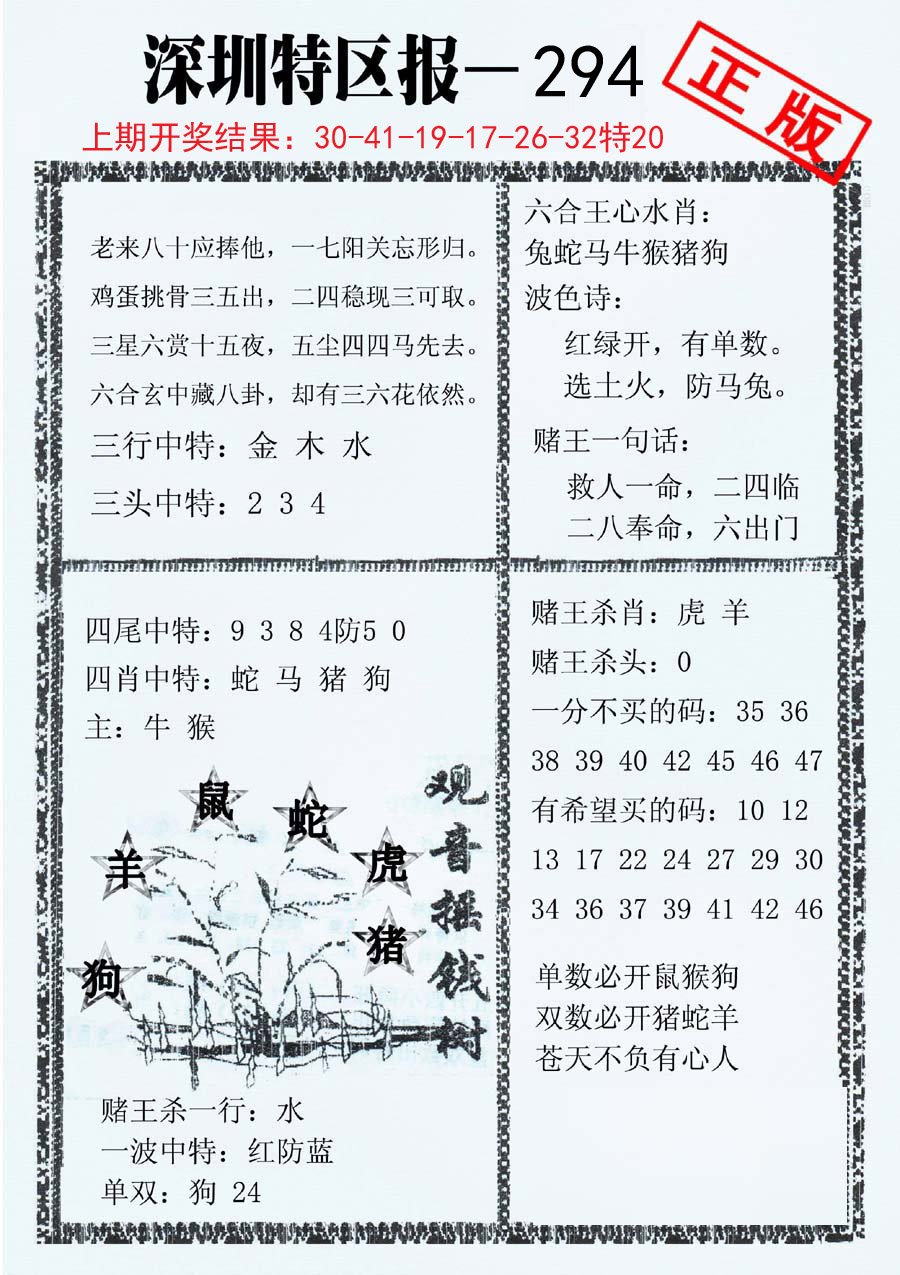 深圳特区报—294
正版
上期开奖结果：30-41-19-17-26-32特20
老来八十应捧他，一七阳关忘形归。
鸡蛋挑骨三五出，二四稳现三可取。
三星六赏十五夜，五尘四四马先去。
六合玄中藏八卦，却有三六花依然。
三行中特：金 木 水
三头中特：2 3 4
六合王心水肖：
兔蛇马牛猴猪狗
波色诗：
红绿开，有单数。
选土火，防马兔。
赌王一句话：
救人一命，二四临
二八奉命，六出门
四尾中特：9 3 8 4防5 0
四肖中特：蛇 马 猪 狗
主：牛 猴
鼠
蛇
羊
虎
猪
狗
观音摇钱树
赌王杀一行：水
一波中特：红防蓝
单双：狗 24
赌王杀肖：虎 羊
赌王杀头：0
一分不买的码：35 36
38 39 40 42 45 46 47
有希望买的码：10 12
13 17 22 24 27 29 30
34 36 37 39 41 42 46
单数必开鼠猴狗
双数必开猪蛇羊
苍天不负有心人